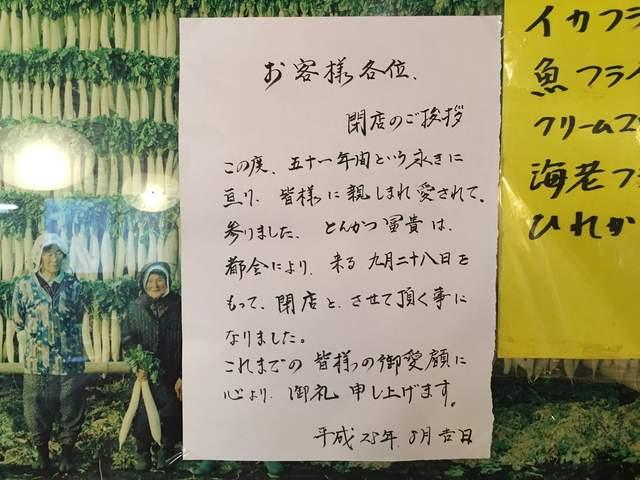 お客様各位、
閉店のご挨拶
この度、五十一年間という永きに
亘り、皆様に親しまれ愛されて、
参りました、とんかつ冨貴は、
都合により、来る九月二十八日を
もって、閉店と、させて頂く事に
なりました。
これまでの皆様の御愛顔に
心より、御礼申し上げます。
平成25年、8月吉日
イカフラ
魚フライ
クリームコ
海老フ
ひれか